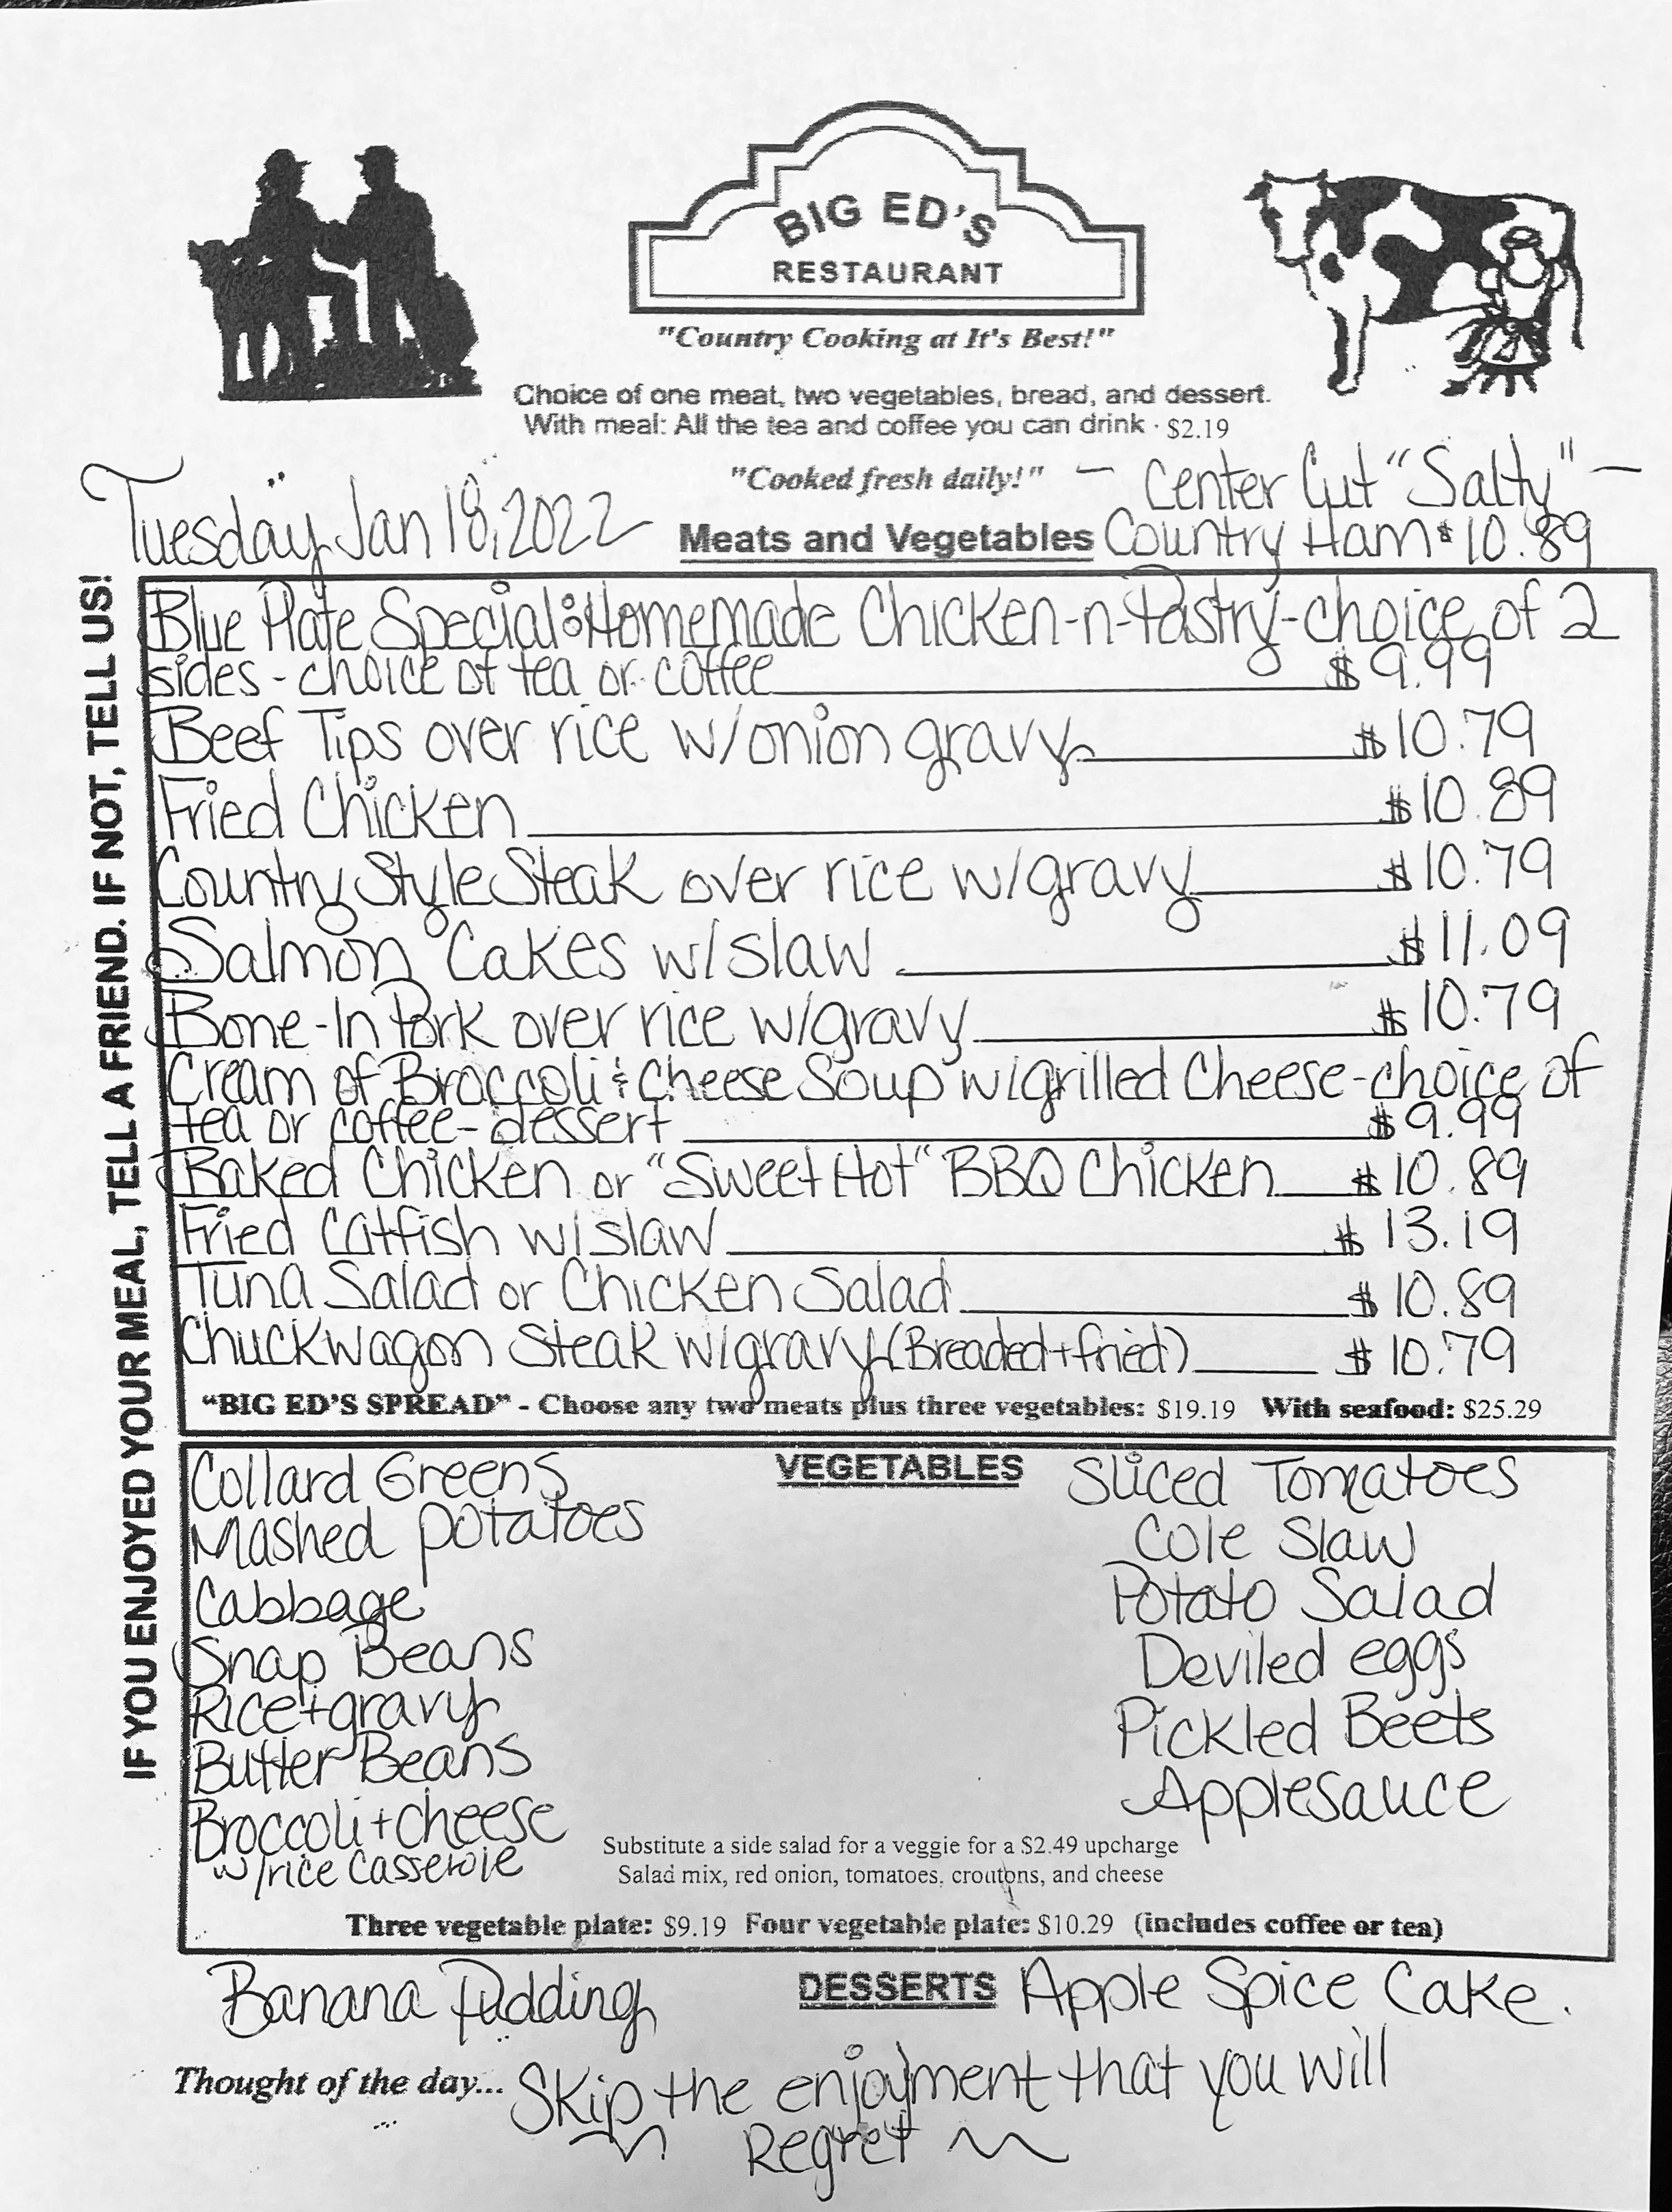 BIG ED'S
RESTAURANT
"Country Cooking at It's Best!"
Choice of one meat, two vegetables, bread, and dessert.
With meal: All the tea and coffee you can drink · $2.19
"Cooked fresh daily!" — Center Cut "Salty" —
Tuesday Jan 18, 2022 Meats and Vegetables Country Ham $10.89
IF YOU ENJOYED YOUR MEAL, TELL A FRIEND. IF NOT, TELL US!
Blue Plate Special: Homemade Chicken-n-Pastry - choice of 2
sides - choice of tea or coffee $9.99
Beef Tips over rice w/onion gravy $10.79
Fried Chicken $10.89
Country Style Steak over rice w/gravy $10.79
Salmon Cakes w/slaw $11.09
Bone-In Pork over rice w/gravy $10.79
Cream of Broccoli & Cheese Soup w/grilled Cheese - choice of
tea or coffee - dessert $9.99
Baked Chicken or "Sweet Hot" BBQ Chicken $10.89
Fried Catfish w/slaw $13.19
Tuna Salad or Chicken Salad $10.89
Chuckwagon Steak w/gravy (Breaded + fried) $10.79
"BIG ED'S SPREAD" - Choose any two meats plus three vegetables: $19.19 With seafood: $25.29
VEGETABLES
Collard Greens
Mashed potatoes
Cabbage
Snap Beans
Rice + gravy
Butter Beans
Broccoli + cheese
w/rice Casserole
Sliced Tomatoes
Cole Slaw
Potato Salad
Deviled eggs
Pickled Beets
Applesauce
Substitute a side salad for a veggie for a $2.49 upcharge
Salad mix, red onion, tomatoes, croutons, and cheese
Three vegetable plate: $9.19 Four vegetable plate: $10.29 (includes coffee or tea)
Banana Pudding DESSERTS Apple Spice Cake.
Thought of the day... Skip the enjoyment that you will
Regret